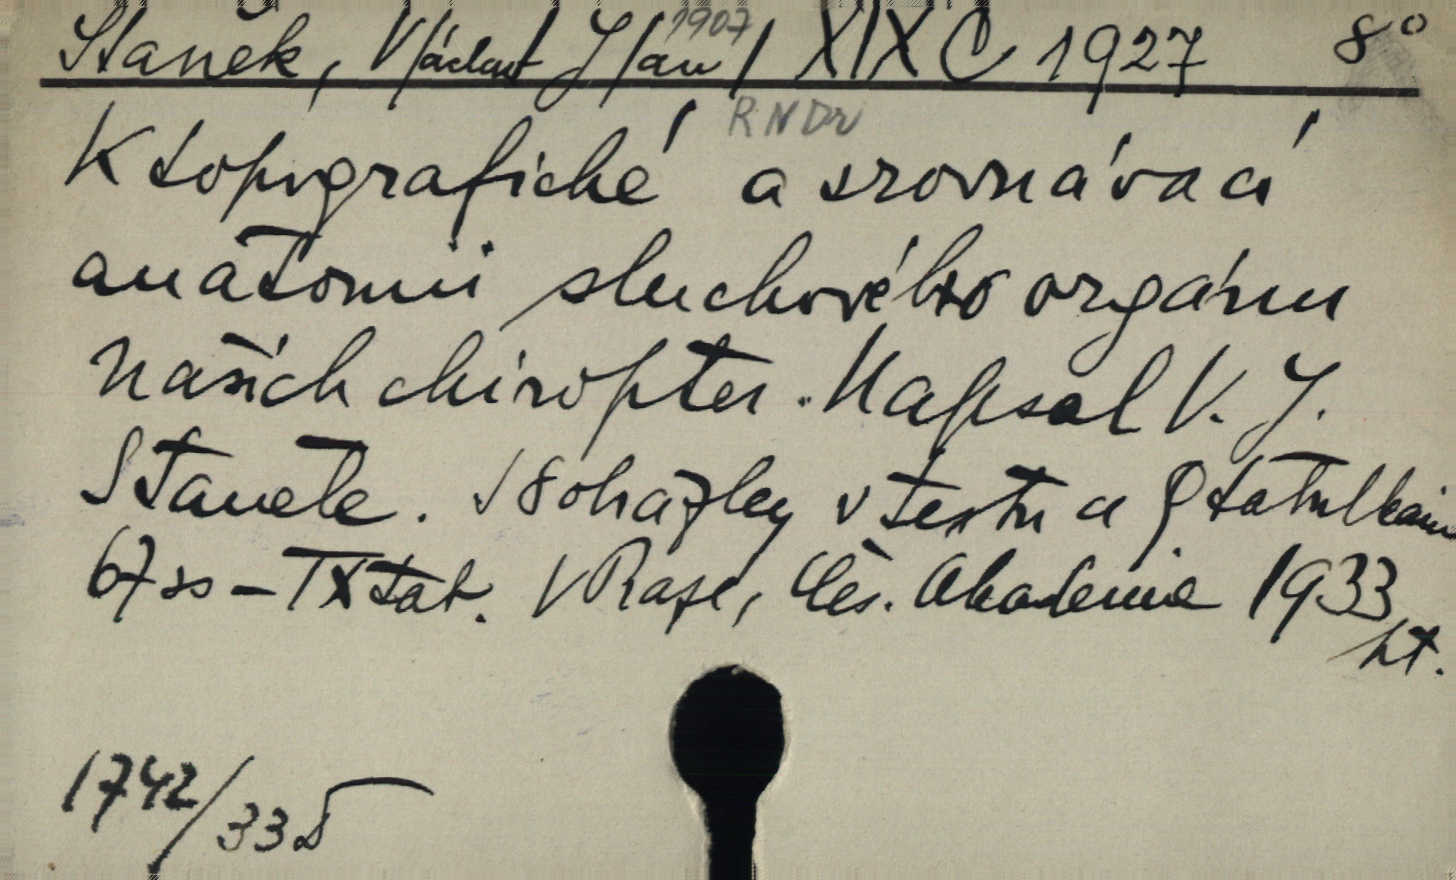 Staněk, V/áclav/ J/an/ 1907 XIX C 1927 8°
RNDr
K topografické a srovnávací
anatomii sluchového orgánu
našich chiropter. Napsal V. J.
Staněk. S 8 obrázky v textu a 9 tabulkami
67 ss – IX tab. V Praze, Čes. Akademie 1933
1742/33